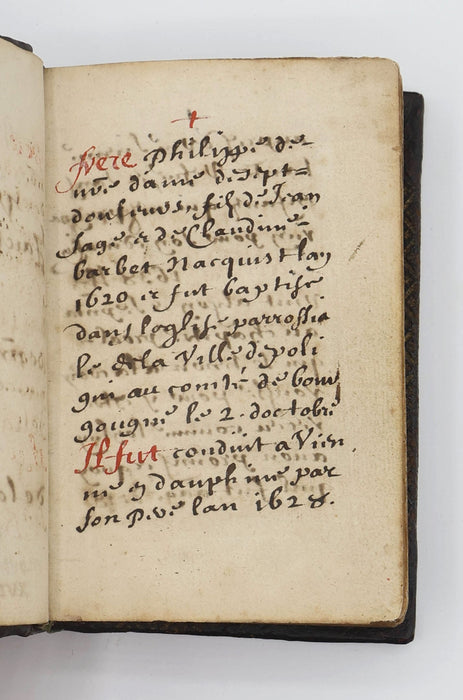 +
frere Philippe de
nre dame de sept=
douleurs, fils de Jean
sage & de Claudine
barbet Nacquist lan
1620 & fut baptise
dans leglise parrossia
le de la Ville de poli
gni au comté de bour
gougne le 2. doctobre
Il fut conduit a Vien
ne e dauphine par
son Pere lan 1628.